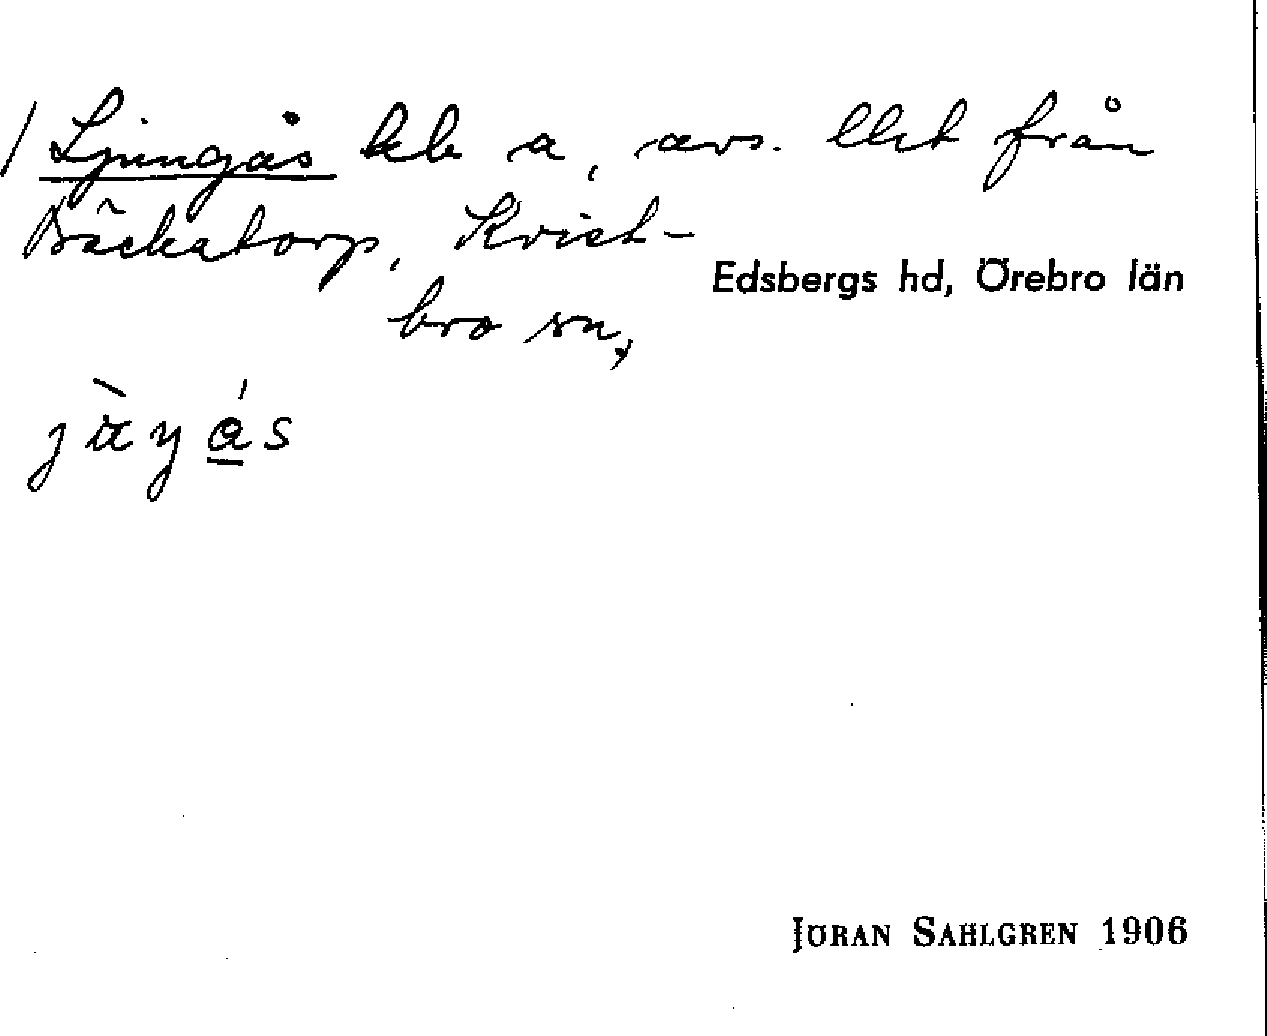 Ljungås kb a, avs. llet från
Bäckatorp, Kvist-
Edsbergs hd, Örebro län
bro sn,
JÖRAN SAHLGREN 1906